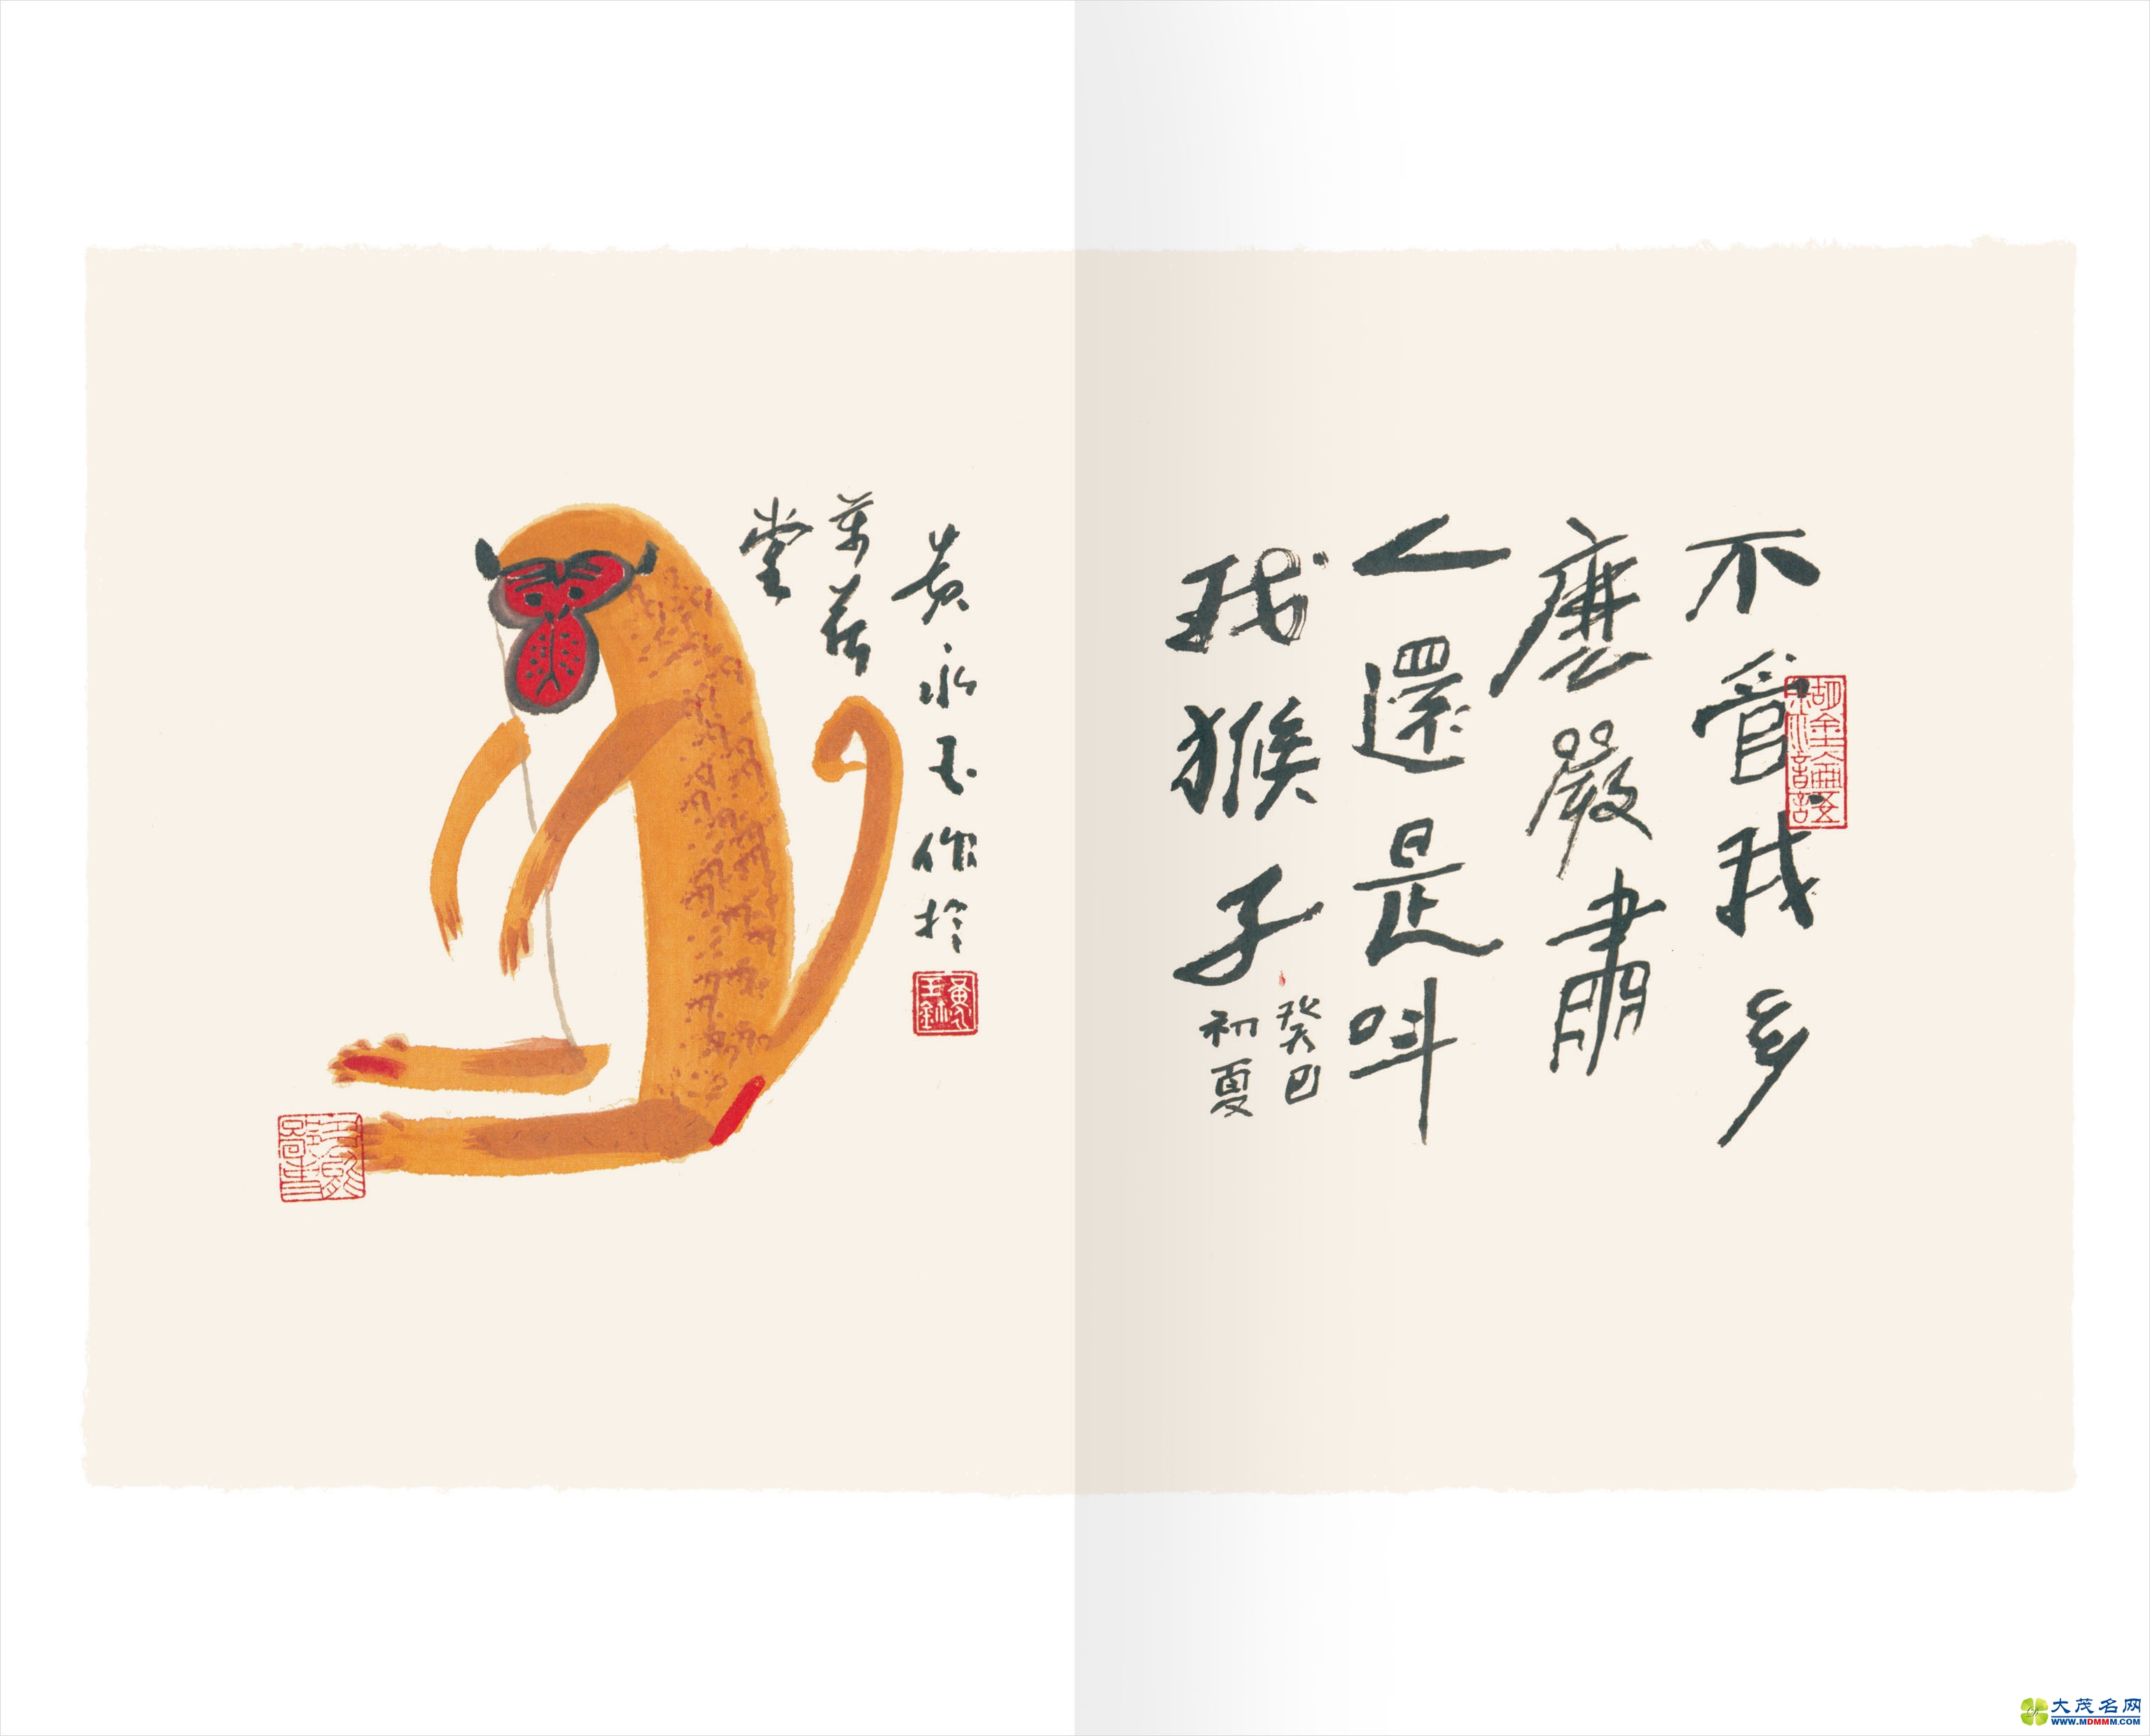 不管我多
麼嚴肅
人還是呌
我猴子
癸巳
初夏
糊塗論語
黃永玉作於
萬荷
堂
大茂名网
WWW.MDMMM.COM